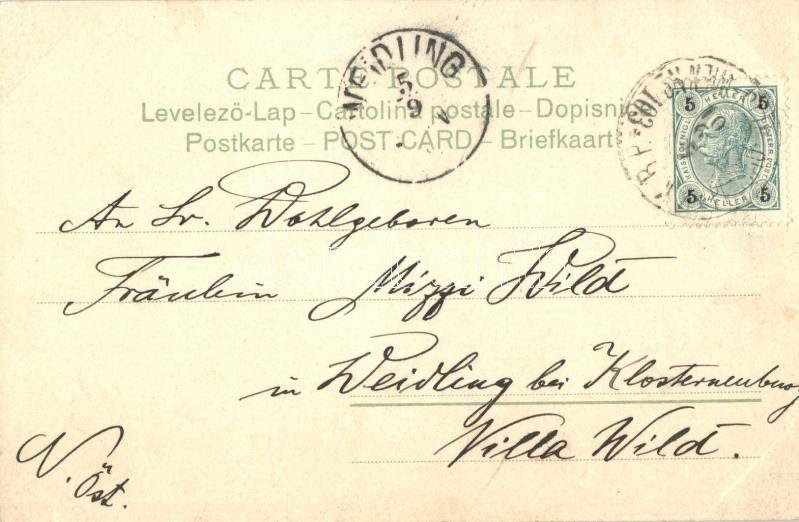 CARTE POSTALE
Levelezö-Lap – Cartolina postale – Dopisnice
Postkarte – POST CARD – Briefkaart
WEIDLING
5
9
5 HELLER 5
5 HELLER 5
An Sr. Wohlgeboren
Fräulein Mizzi Wild
in Weidling bei Klosterneuburg
Villa Wild.
N. Öst.